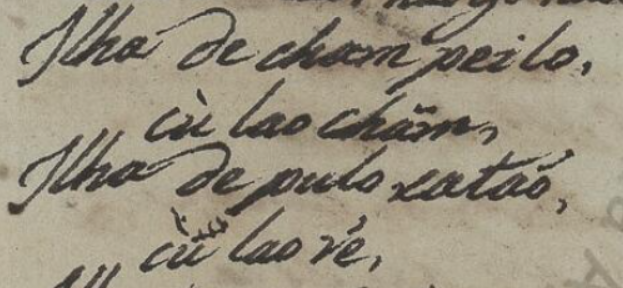 Ilha de cham peilo,
cù lao chàm,
Ilha de pulo cataõ,
cù lao ré,